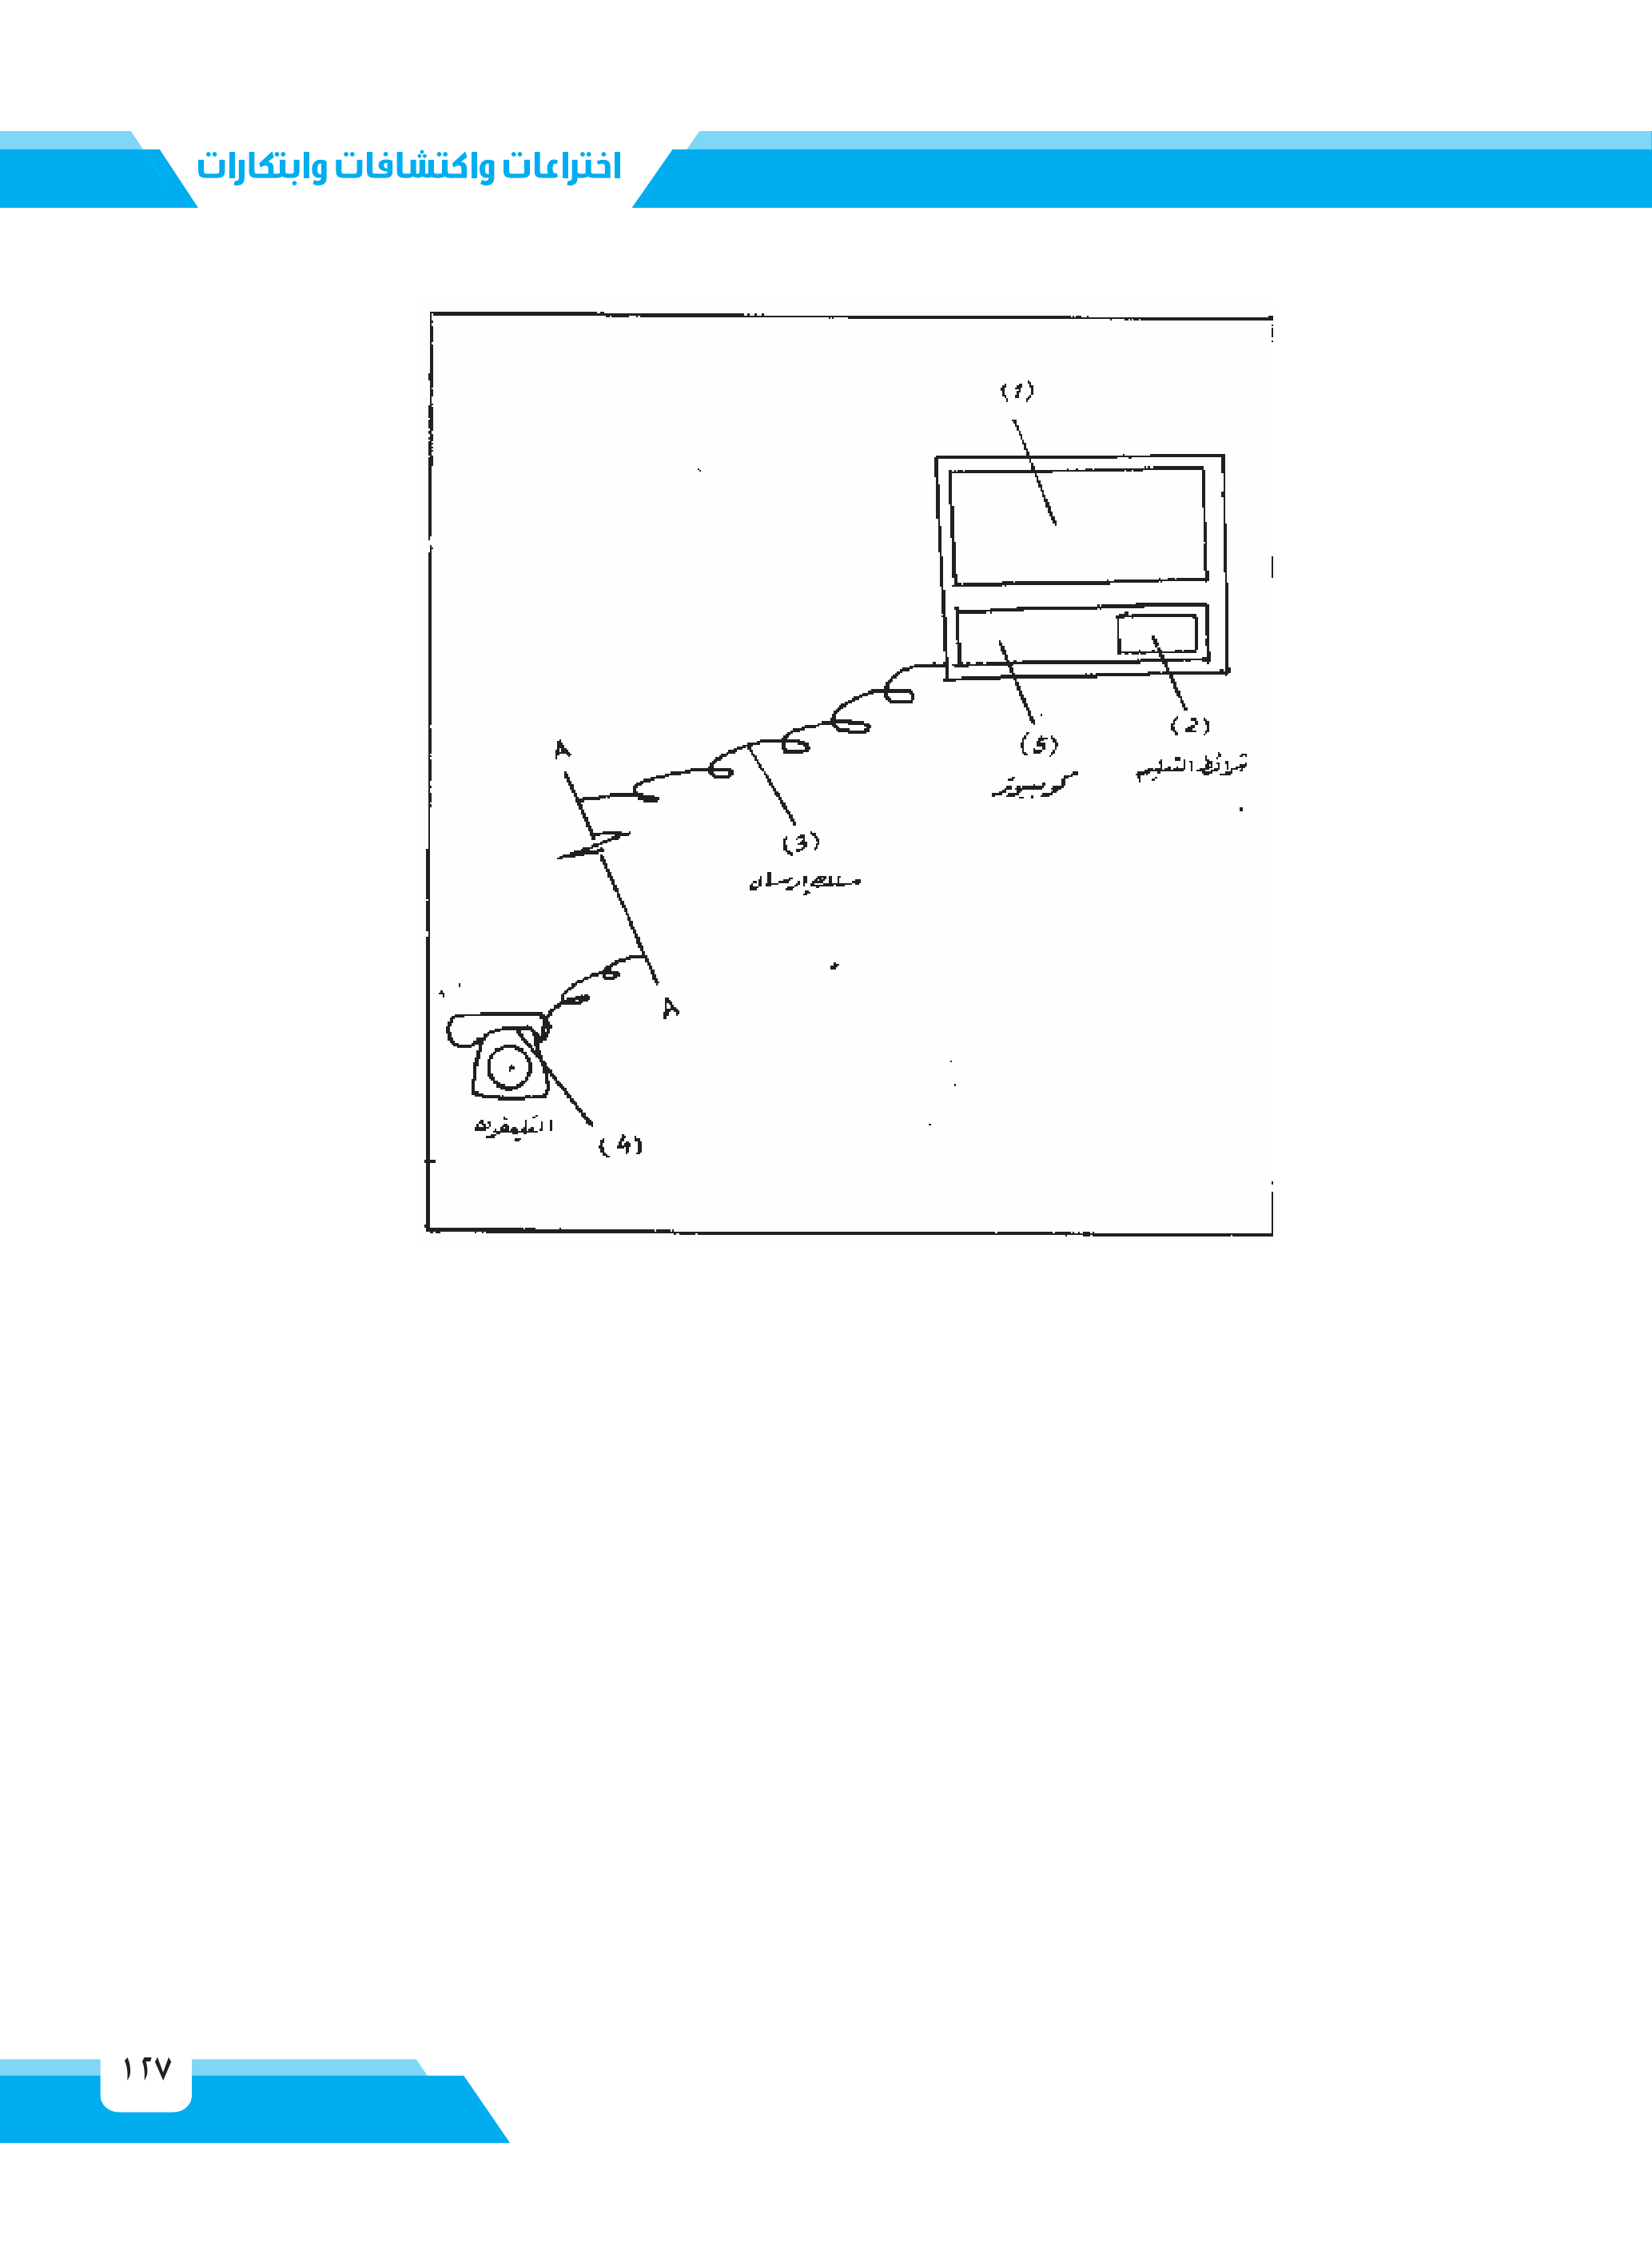 اختراعات واكتشافات وابتكارات
(1)
(2)
شرائط التعليم
(5)
كومبيوتر
A
(3)
سلك إرسال
A
التليفون
(4)
١٢٧